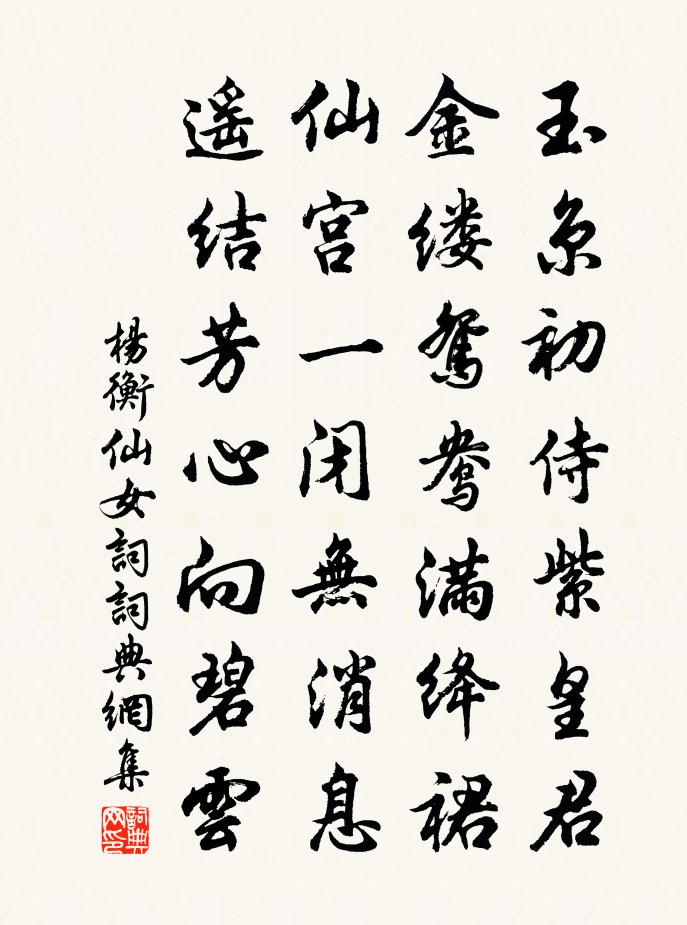 玉京初侍紫皇君
金缕鸳鸯满绛裙
仙宫一闭無消息
遥结芳心向碧雲
楊衡仙女詞詞典網集
詞典网印